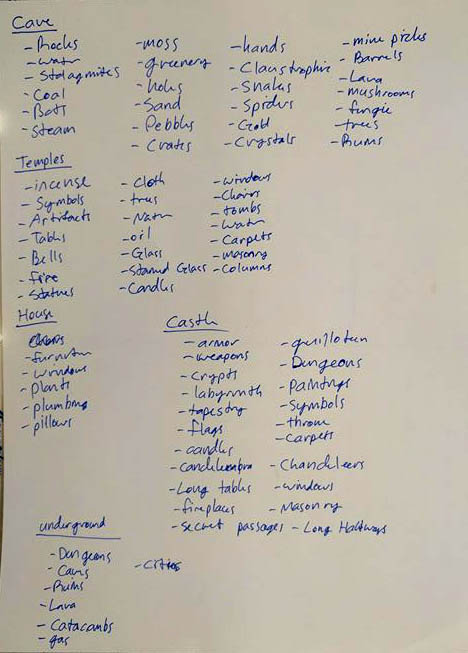 Cave
- Rocks
- water
- Stalagmites
- Coal
- Bats
- Steam
- moss
- greenery
- holes
- Sand
- Pebbles
- Crates
- hands
- Claustrophic
- Snakes
- Spiders
- Gold
- Crystals
- mine picks
- Barrels
- Lava
- mushrooms
- fungie
- trees
- Ruins
Temples
- incense
- Symbols
- Artifacts
- Tables
- Bells
- Fire
- Statues
- Cloth
- trees
- Nature
- oil
- Glass
- Stained Glass
- Candles
- windows
- Chairs
- tombs
- water
- Carpets
- masonry
- Columns
House
- furniture
- windows
- plants
- plumbing
- pillows
Castle
- armor
- weapons
- Crypts
- labyrinth
- tapestry
- flags
- candles
- candelembra
- Long tables
- fireplaces
- secret passages
- guilloteen
- Dungeons
- paintings
- Symbols
- throne
- carpets
- Chandeleers
- windows
- Masonry
- Long Hallways
underground
- Dungeons
- Caves
- Ruins
- Lava
- Catacombs
- gas
- Cities